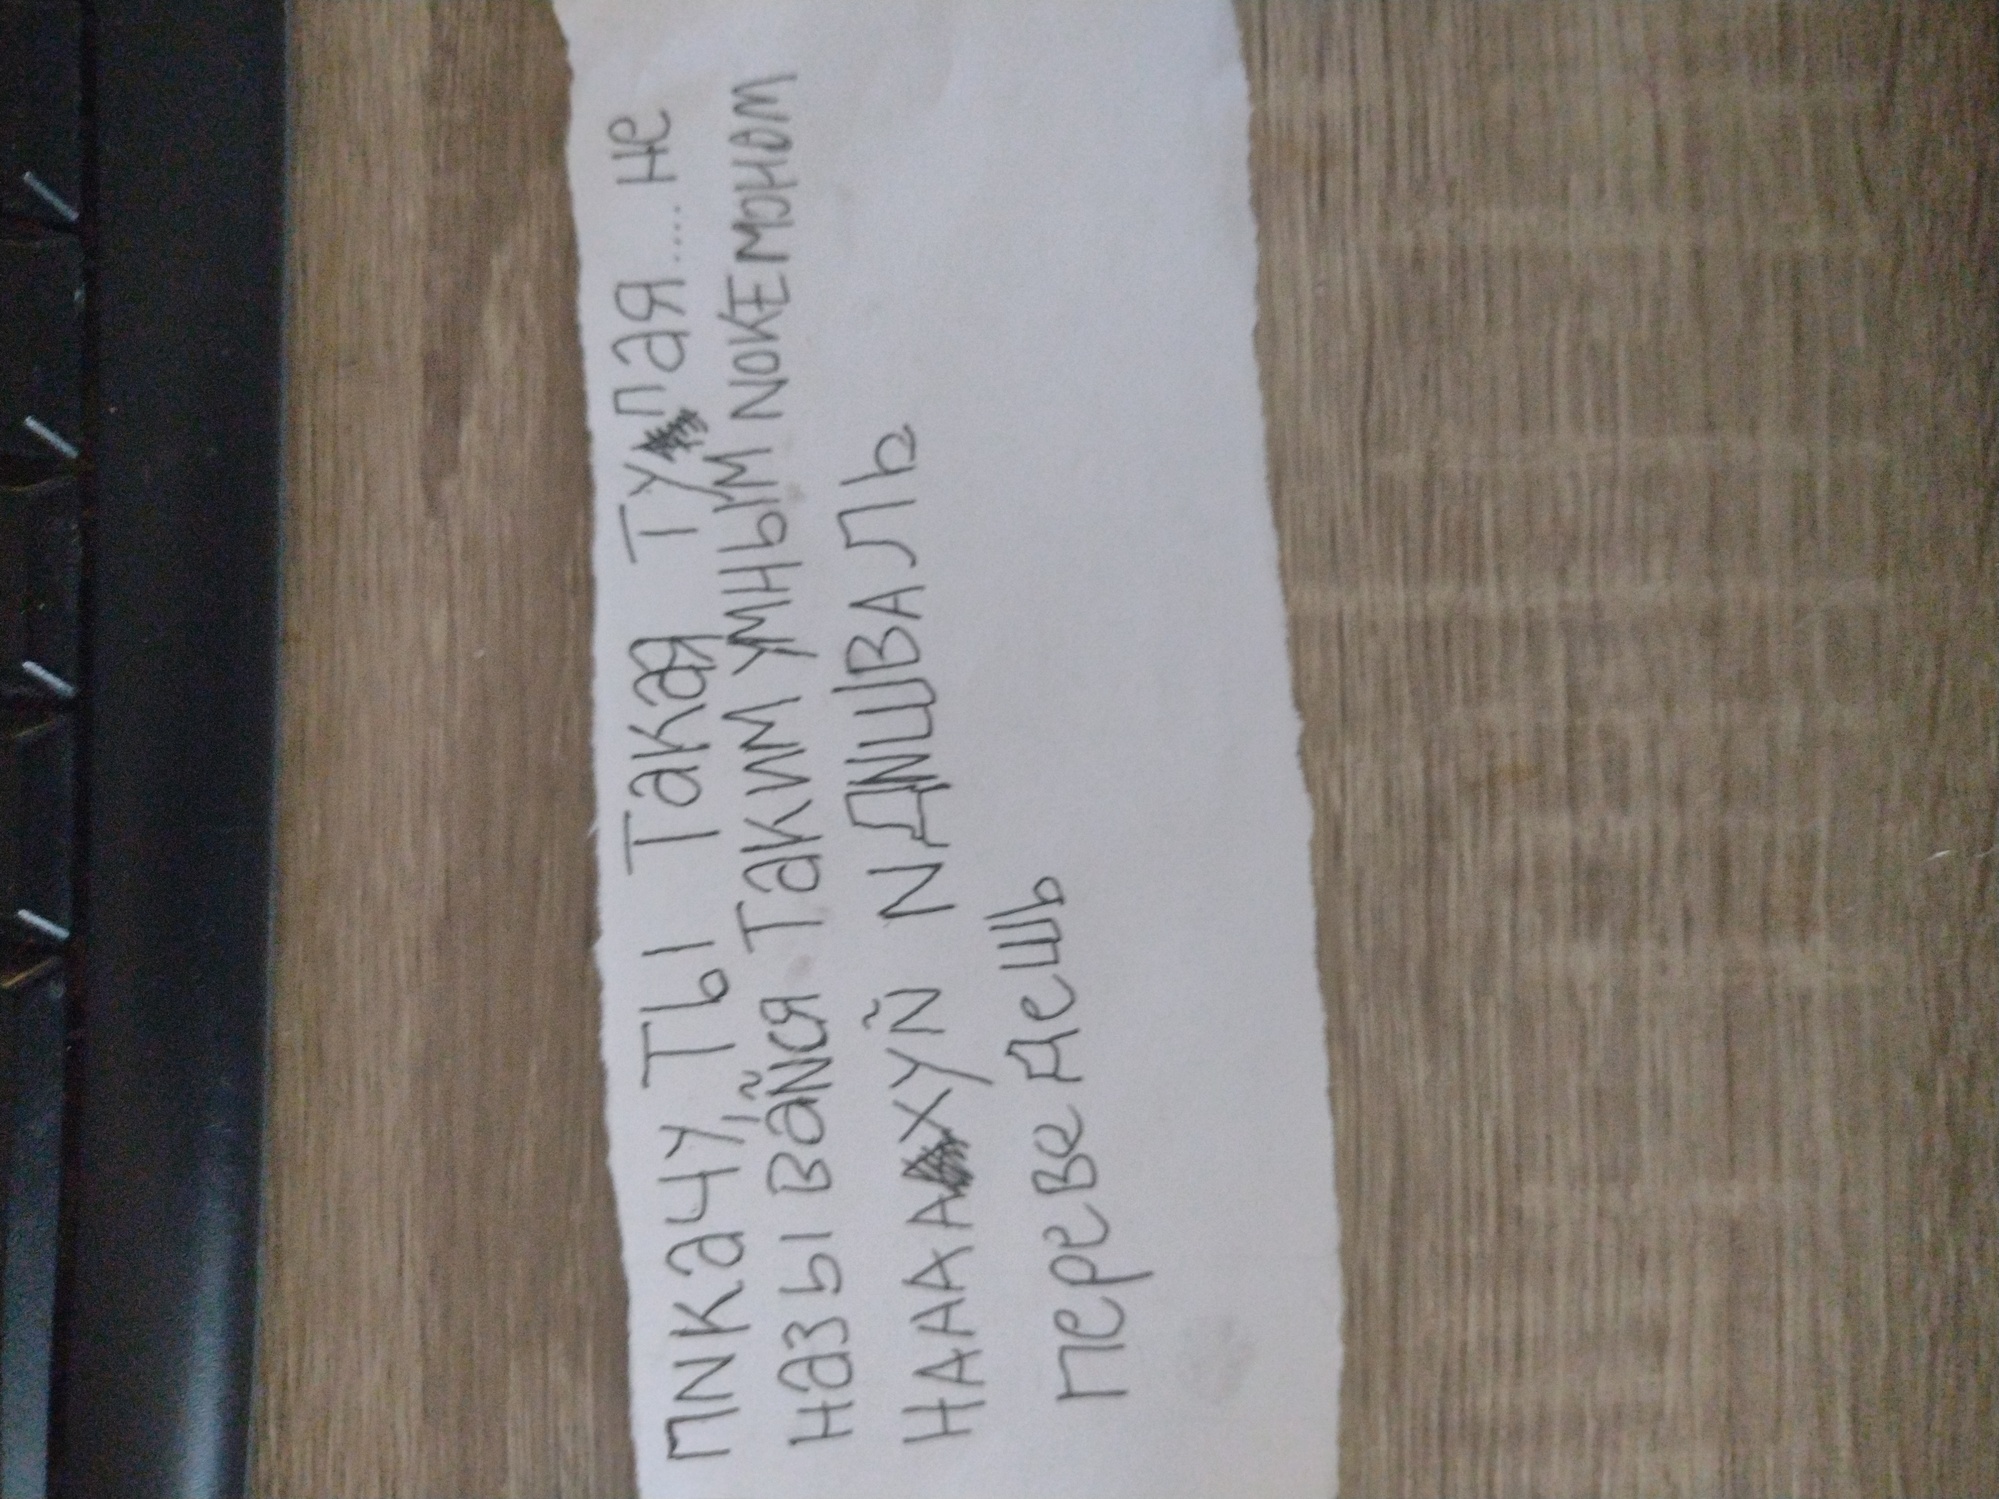 ПИКАЧУ, ТЫ Такая Тупая..... Не
называйся Таким умным ПОКЕМОНОМ
НАААХУЙ
Переведешь